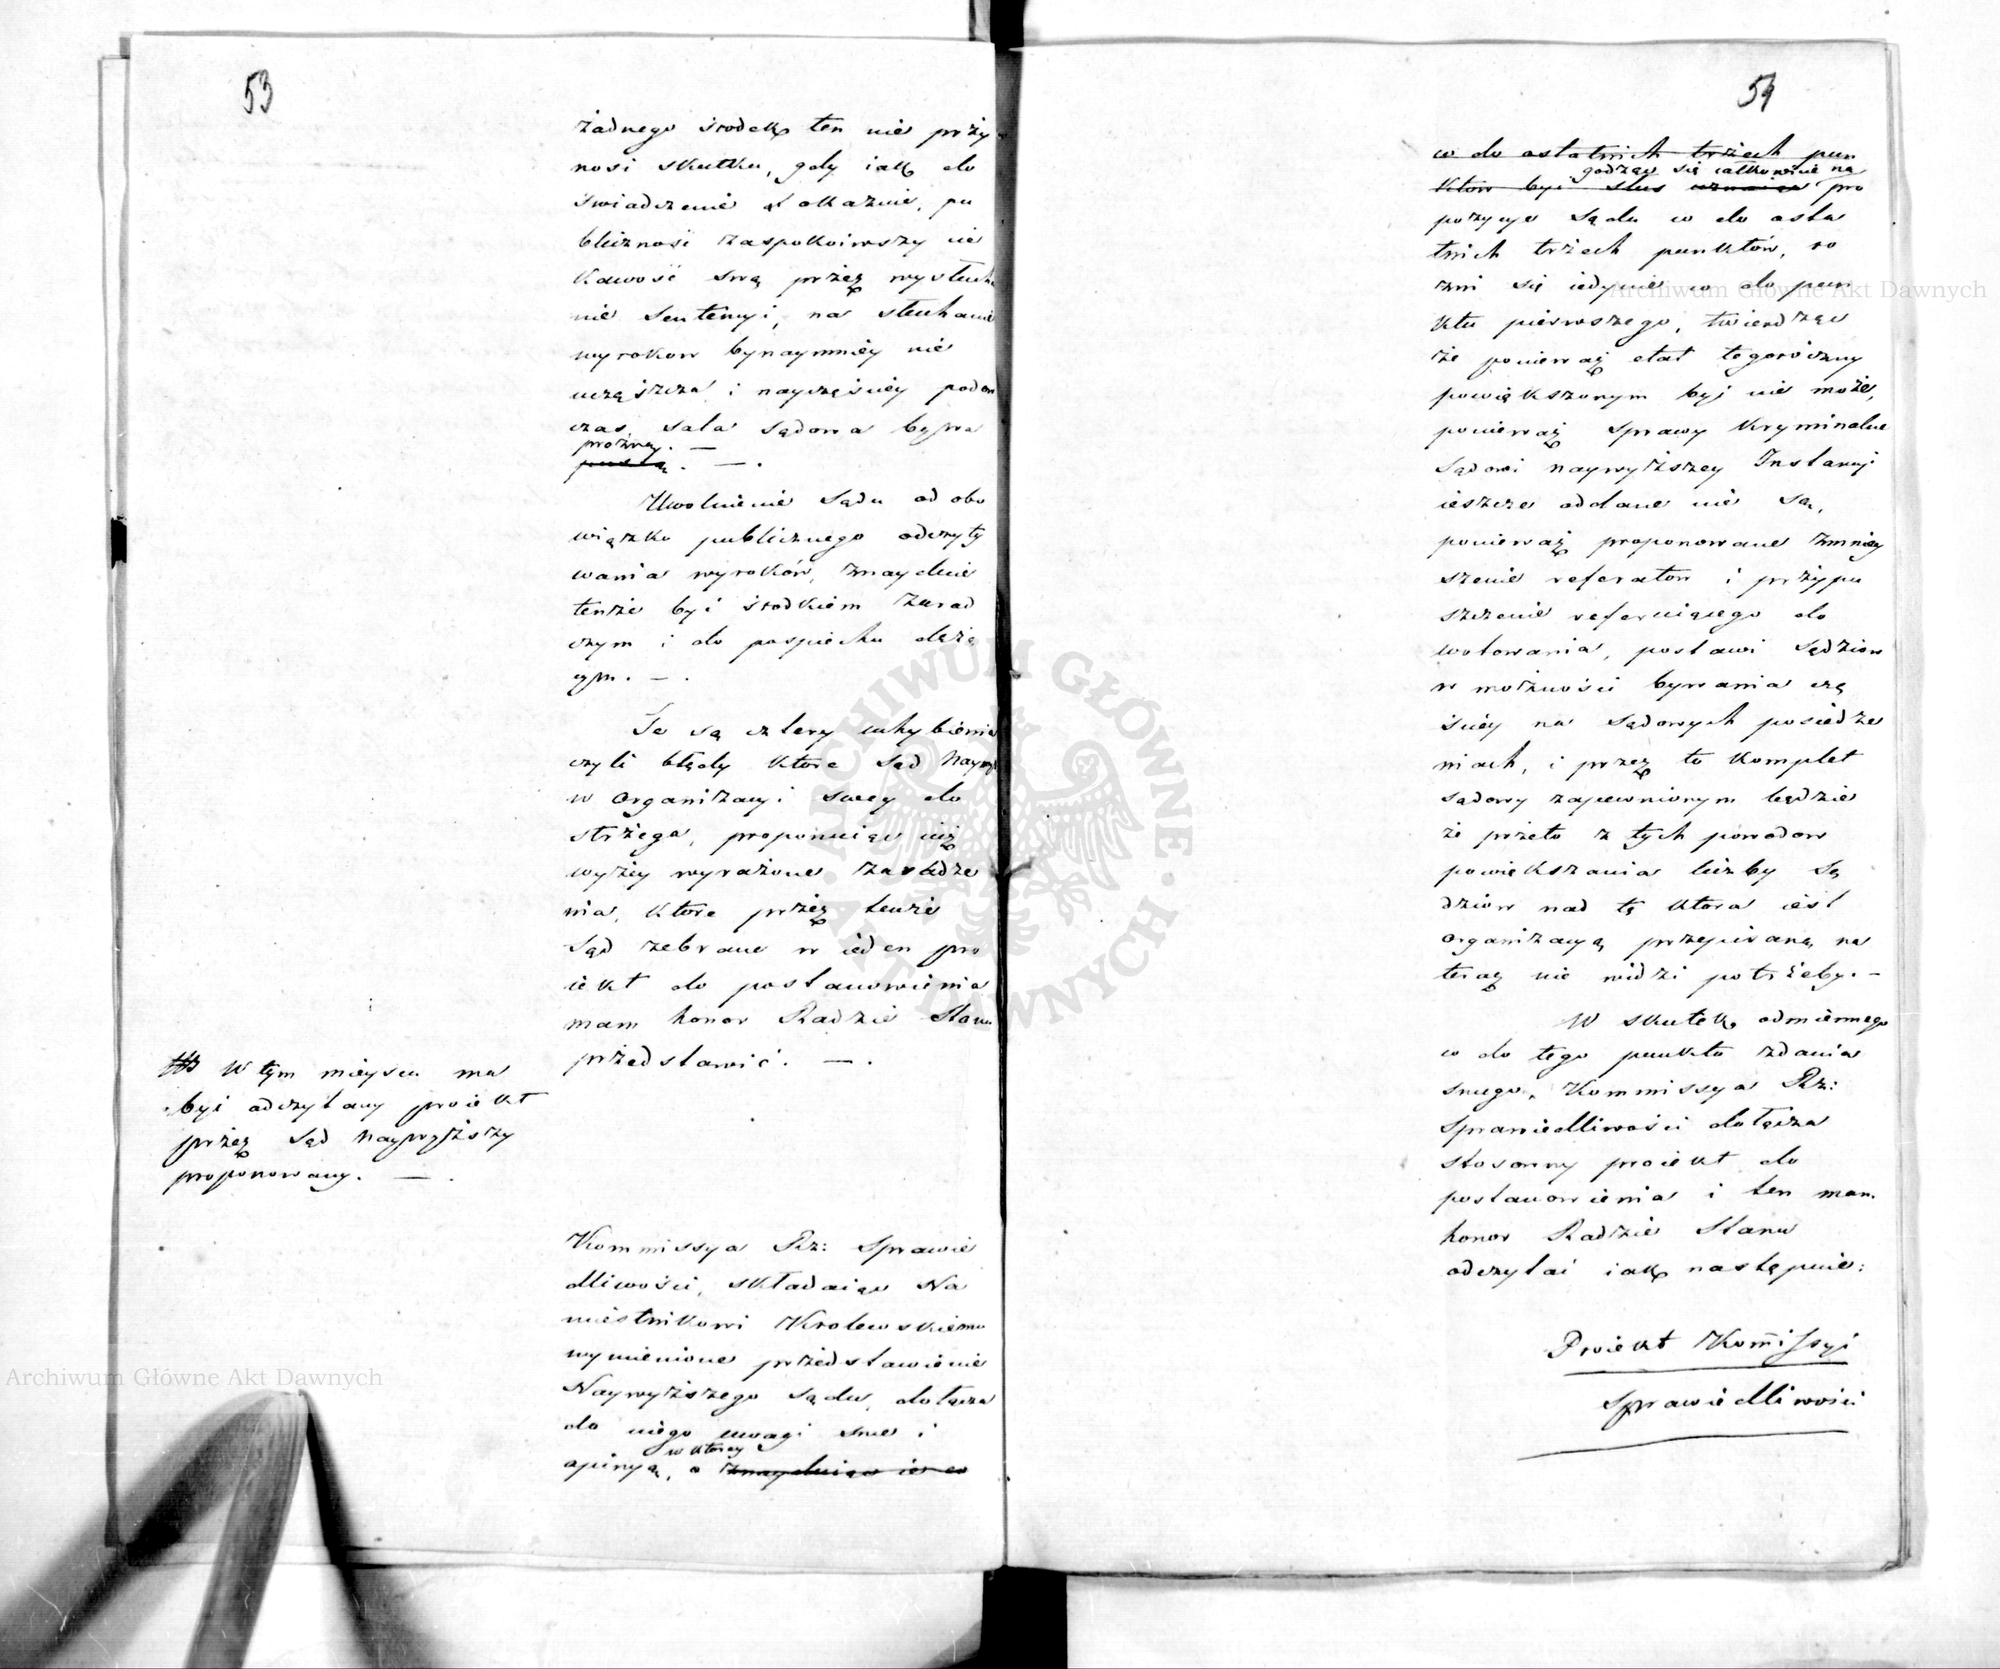 53
żadnego środek ten nie przy
nosi skutku, gdy iak do
świadczenie okazuie, pu
bliczność zaspokoiwszy cie
kawość swą przez wysłucha
nie Sentencyi, na słuchanie
wyrokow bynaymniéy nie
uczęszcza i nayczęściéy podow
czas, sala sądowa bywa
prożną. —
pustą. — .
Uwolnienie Sądu od obo
wiązku publicznego odczyty
wania wyroków, znayduie
tenże być środkiem zarad
czym i do pospiechu dążą
cym. — .
Te są cztery uchybienia
czyli błędy które Sąd Naywyż
w Organizacyi swey do
strzega, proponuiąc iuż
wyżéy wyrażone zaradze
nia, które przez tenże
Sąd zebrane w ieden pro
iekt do postanowienia
mam honor Radzie Stanu
przedstawić. — .
W tym mieyscu ma
być odczytany proiekt
przez Sąd Naywyższy
proponowany. — .
Kommissya Rz: Sprawie
dliwości, składaiąc Na
miestnikowi Krolewskiemu
wymienione przedstawienie
Naywyższego Sądu, dołącza
do niego uwagi swe i
w którey
opinyą, a znayduiąc ie co
54
co do ostatnich trzech pun
godząc się całkowicie na
któw być słus uznaiąc pro
pozycye Sądu co do osta
tnich trzech punktów, ro
żni się iedynie co do pun
ktu pierwszego, twierdząc
że ponieważ etat tegoroczny
powiększonym być nie może,
ponieważ Sprawy Kryminalne
Sądowi naywyższey Instancyi
ieszcze oddane nie są,
ponieważ proponowane zmniey
szenie referatow i przypu
szczenie referuiącego do
wotowania, postawi Sędziow
w możności bywania czę
ściéy na Sądowych posiedze
niach, i przez to Komplet
sądowy zapewnionym będzie
że przeto z tych powodow
powiększania liczby Sę
dziow nad tę która iest
organizacyą przepisaną na
teraz nie widzi potrzeby. —
W skutek odmiennego
co do tego punktu zdania
swego, Kommissya Rz:
Sprawiedliwości dołącza
stosowny proiekt do
postanowienia i ten mam
honor Radzie Stanu
odczytać iak następuie:
Proiekt Kom̃issyi
Sprawiedliwości